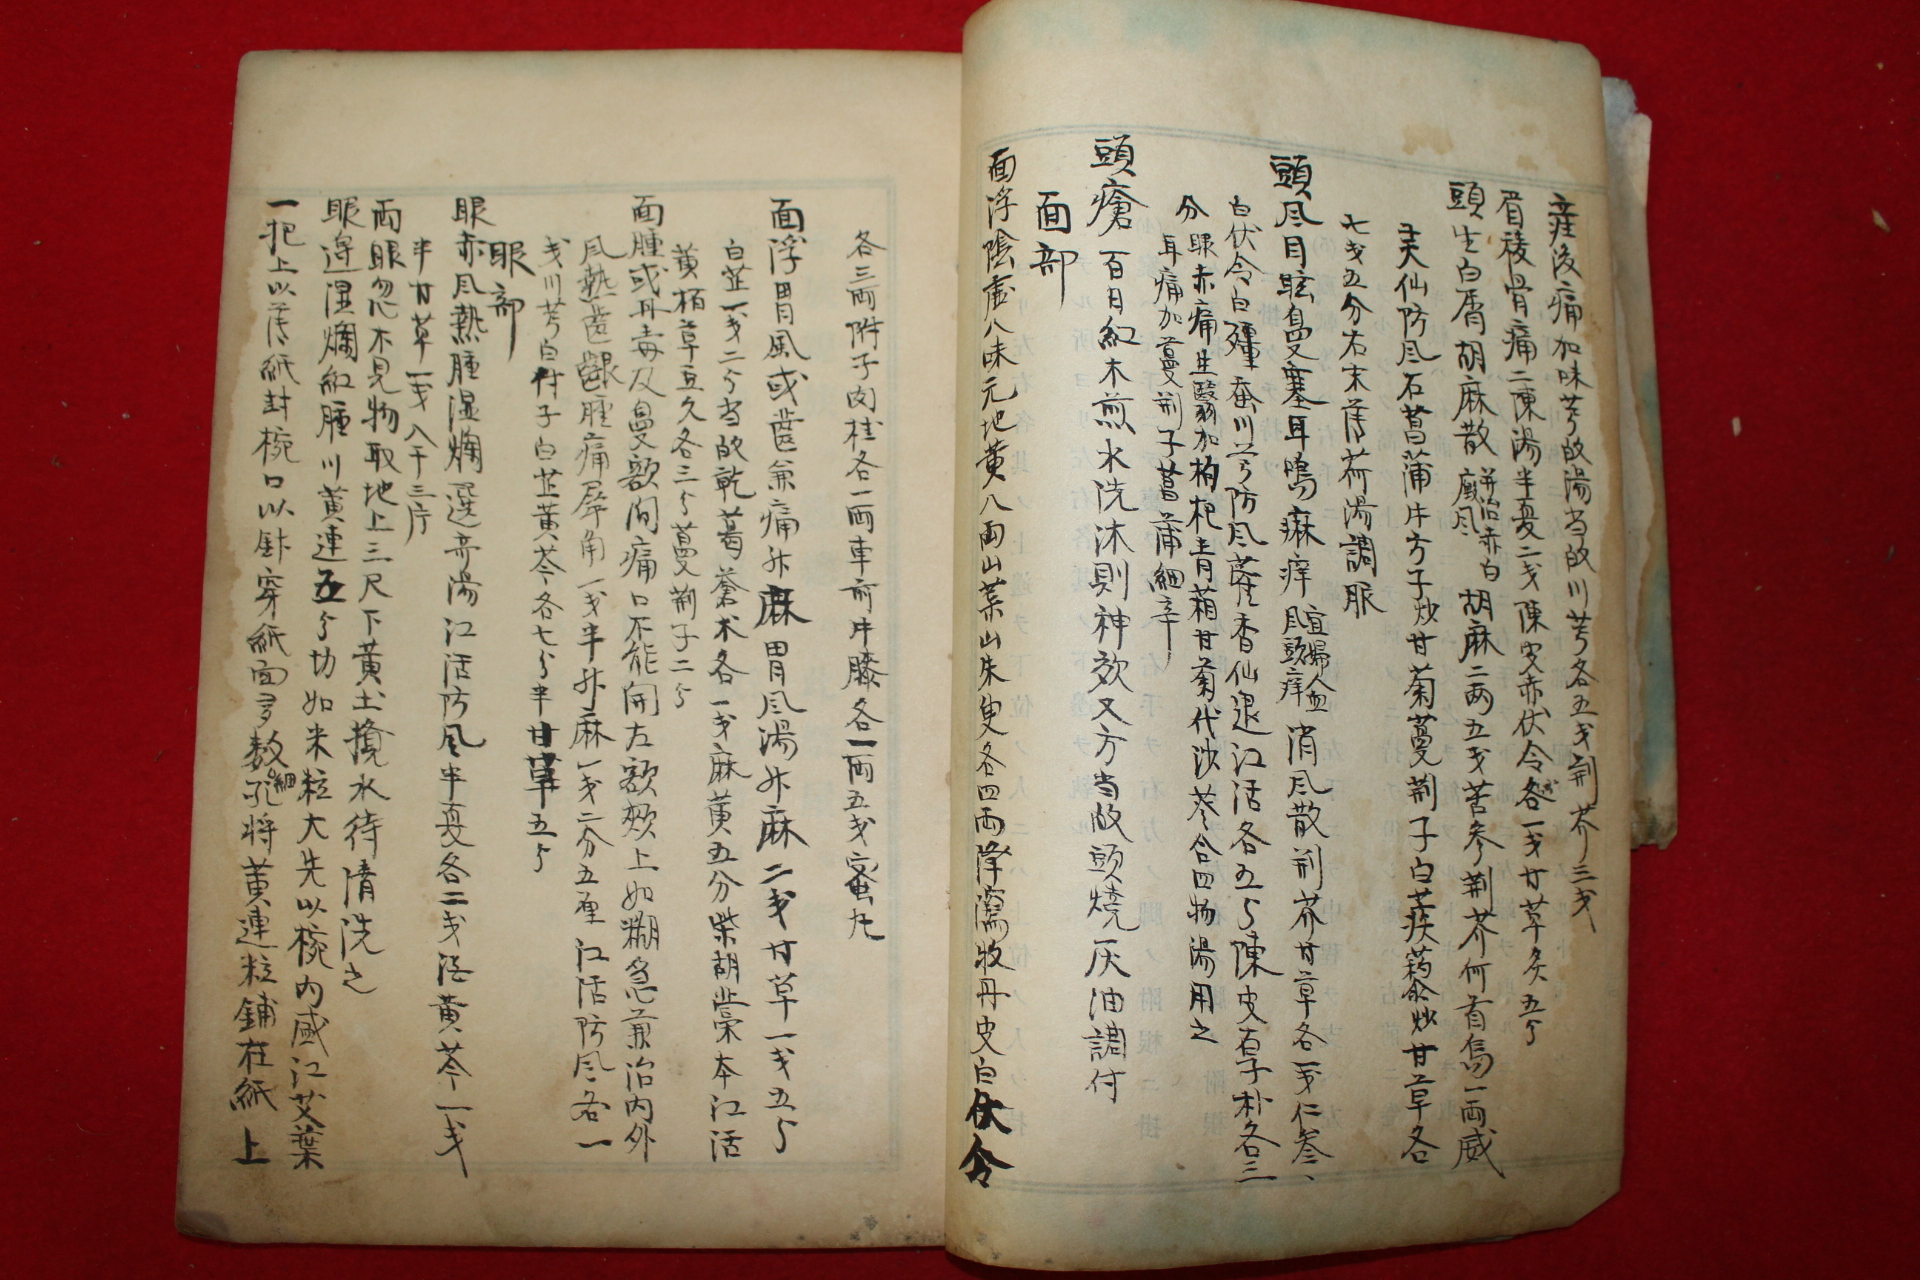 産後痛加味芎歸湯当歸川芎各五戔荊芥三戔
眉稜骨痛二陳湯半夏二戔陳皮赤伏令各一戔甘草炙五分
頭生白屑胡麻散 並治赤白癜風 胡麻二両五戔苦参荊芥何首烏一両威
天仙防风石菖蒲牛方子炒甘菊蔓荊子白蒺藜炒甘草各
七戔五分右末薄荷湯調服
頭风目眩眞塞耳鳴麻痒 宜婦人血风頭痒 消风散荊芥甘草各一戔仁參、
白伏令白殭蚕川芎防风藿香仙退江活各五分陳皮厚朴各三
分眼赤痛生翳加枸杞青葙甘菊代沙参合四物湯用之
耳痛加蔓荊子菖蒲細辛
頭瘡百日紅木煎水洗沐則神效又方当歸頭燒灰油調付
面部
面浮陰虛八味元地黄八両山葉山朱萸各四両降瀉牧丹皮白伏令
各三両附子肉桂各一両車前牛膝各一両五戔蜜丸
面浮胃風或齒兼痛升麻胃风湯升麻二戔甘草一戔五分
白芷一戔二分当歸乾葛蒼朮各一戔麻黄五分柴胡藁本江活
黄栢草豆久各三分蔓荊子二分
面腫或丹毒及鼻額间痛口不能開左額頰上如糊急兼治内外
风熱齒齦腫痛犀角一戔半升麻一戔二分五厘江活防风各一
戔川芎白付子白芷黄芩各七分半甘草五分
眼部
眼赤风熱腫湿爛選奇湯江活防风半夏各二戔活黄芩一戔
半甘草一戔入干三片
両眼忽不見物取地上三尺下黄土攪水待清洗之
眼邊湿爛紅腫川黄連五分切如米粒大先以椀内盛江艾葉
一把上以薄紙封椀口以針穿紙面多数細孔將黄連粒鋪在紙上